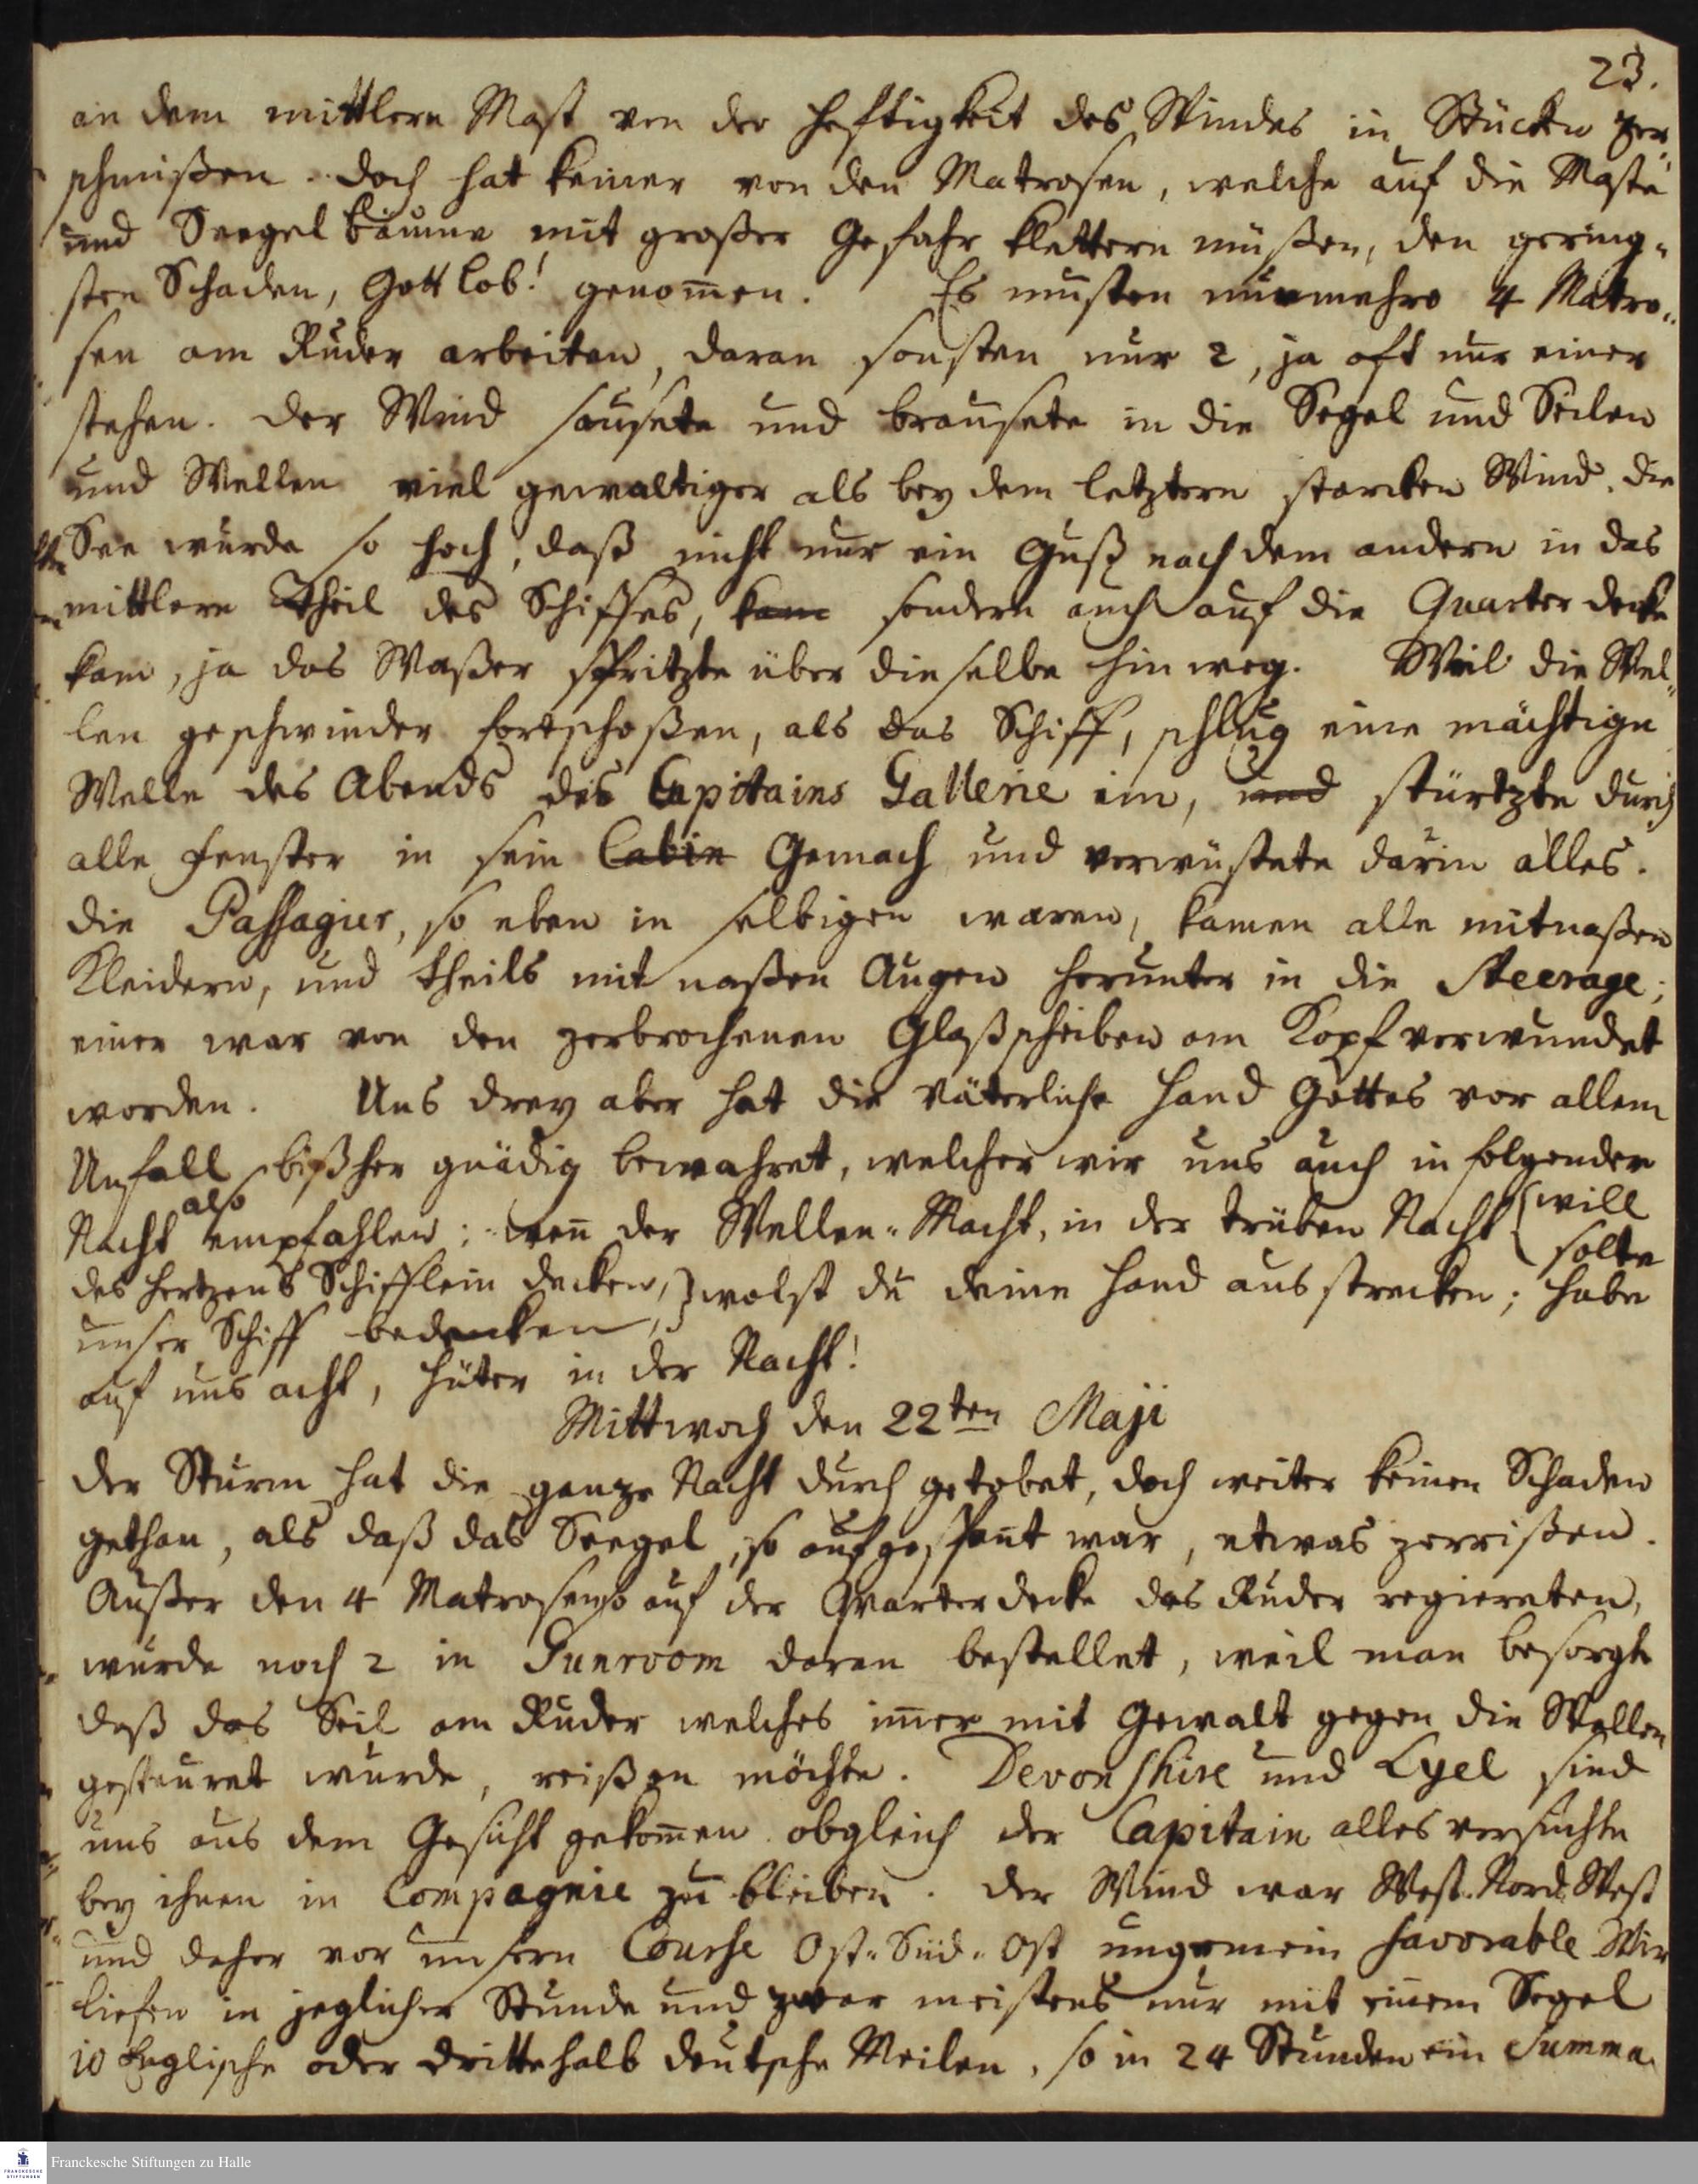 23.
an dem mittlern Mast von der Hefftigkeit des Windes in Stücken zer-
schmißen. doch hat keiner von den Matrosen, welche auf die Maste
und Seegel bäume mit großer Gefahr klettern müßen, den gering-
sten Schaden, Gott lob! genom̄en. Es musten nunmehro 4 Matro-
sen am Ruder arbeiten, daran sonsten nur 2, ja oft nur einer
stehen. der Wind sausete und brausete in die Segel und Seilen
und Wellen viel gewaltiger als bey dem letztern starcken Wind. die
See wurde so hoch, daß nicht nur ein Guß nach dem andern in das
mittlere Theil des Schiffes, kam sondern auch auf die Quarter decke
kam, ja das Waßer spritzte über dieselbe hinweg. Weil die Wel-
len geschwinder fortschoßen, als das Schiff, schlug eine mächtige
Welle des Abends des Capitains Gallerie ein, und stürtzte durch
alle Fenster in sein Cabin Gemach und verwüstete darin alles.
die Passagier, so eben in selbigen waren, kamen alle mit naßen
Kleidern, und theils mit naßen Augen herunter in die Steerage;
einer war von den zerbrochenen Glaßscheiben am Kopf verwundet
worden. Uns drey aber hat die väterliche Hand Gottes vor allem
Unfall bißher gnädig bewahret, welcher wir uns auch in folgender
Nacht also empfahlen: wen̄ der Wellen-Macht, in der trüben Nacht { will
solte
des Hertzens Schifflein decken, } wolst du deine Hand ausstrecken; habe
unser Schiff bedencken,
auf uns acht, Hüter in der Nacht!
Mittwoch den 22ten Maji
der Sturm hat die ganze Nacht durch getobet, doch weiter keinen Schaden
gethan, als daß das Seegel, so aufgespant war, etwas zerrißen.
Außer den 4 Matrosen so auf der Quarter decke das Ruder regiereten,
wurde noch 2 in Gunroom daran bestellet, weil man besorgte
daß das Seil am Ruder welches im̄er mit Gewalt gegen die Wellen
gesteuret wurde, reißen möchte. Devonshire und Lyel sind
uns aus dem Gesicht gekom̄en obgleich der Capitain alles versuchte
bey ihnen in Compagnie zu bleiben. der Wind war West-Nord-West
und daher vor unsern Course Ost-Süd-Ost ungemein favorable Wir
liefen in jeglicher Stunde und zwar meistens nur mit einem Segel
10 Englische oder drittehalb deutsche Meilen, so in 24 Stunden ein Summa
Franckesche Stiftungen zu Halle
FRANCKESCHE
STIFTUNGEN